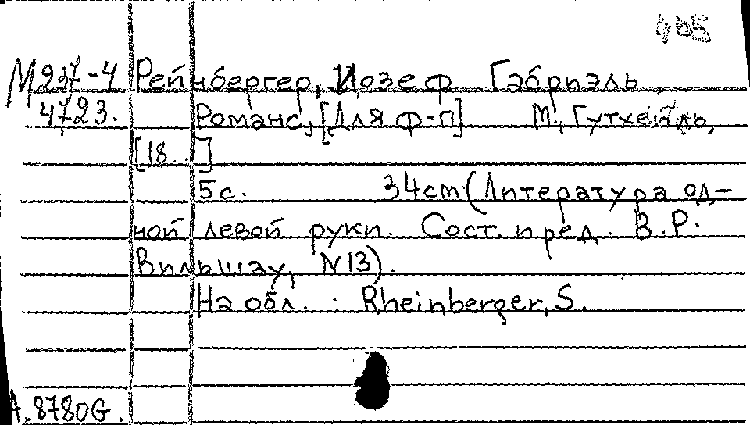 405
М237-4 Рейнбергер, Иозеф Габриэль.
4723. Романс, [Для ф-п] М., Гутхейль,
[18...]
5с. 34cm (Литература од-
ной левой руки. Сост. и ред. В.Р.
Вильшау, N13).
На обл.: Rheinberger, S.
А.8780G.